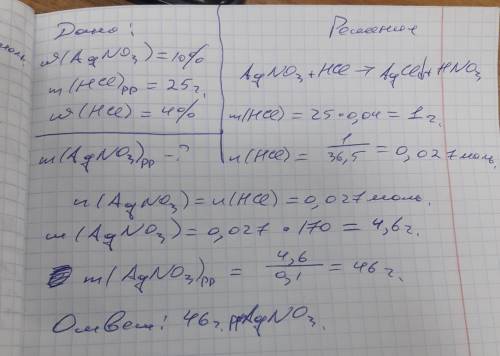 Дано:
ω(AgNO₃)=10%
m(HCl)рр = 25г.
ω(HCl)=4%
m(AgNO₃)рр -?
Решение
AgNO₃+HCl→AgCl↓+HNO₃
m(HCl)=25•0,04=1г.
n(HCl)= 1/36,5 =0,027моль
n(AgNO₃)=n(HCl)=0,027моль.
m(AgNO₃)=0,027•170=4,6г.
m(AgNO₃)рр = 4,6/0,1 =46г.
Ответ: 46г. ррAgNO₃.